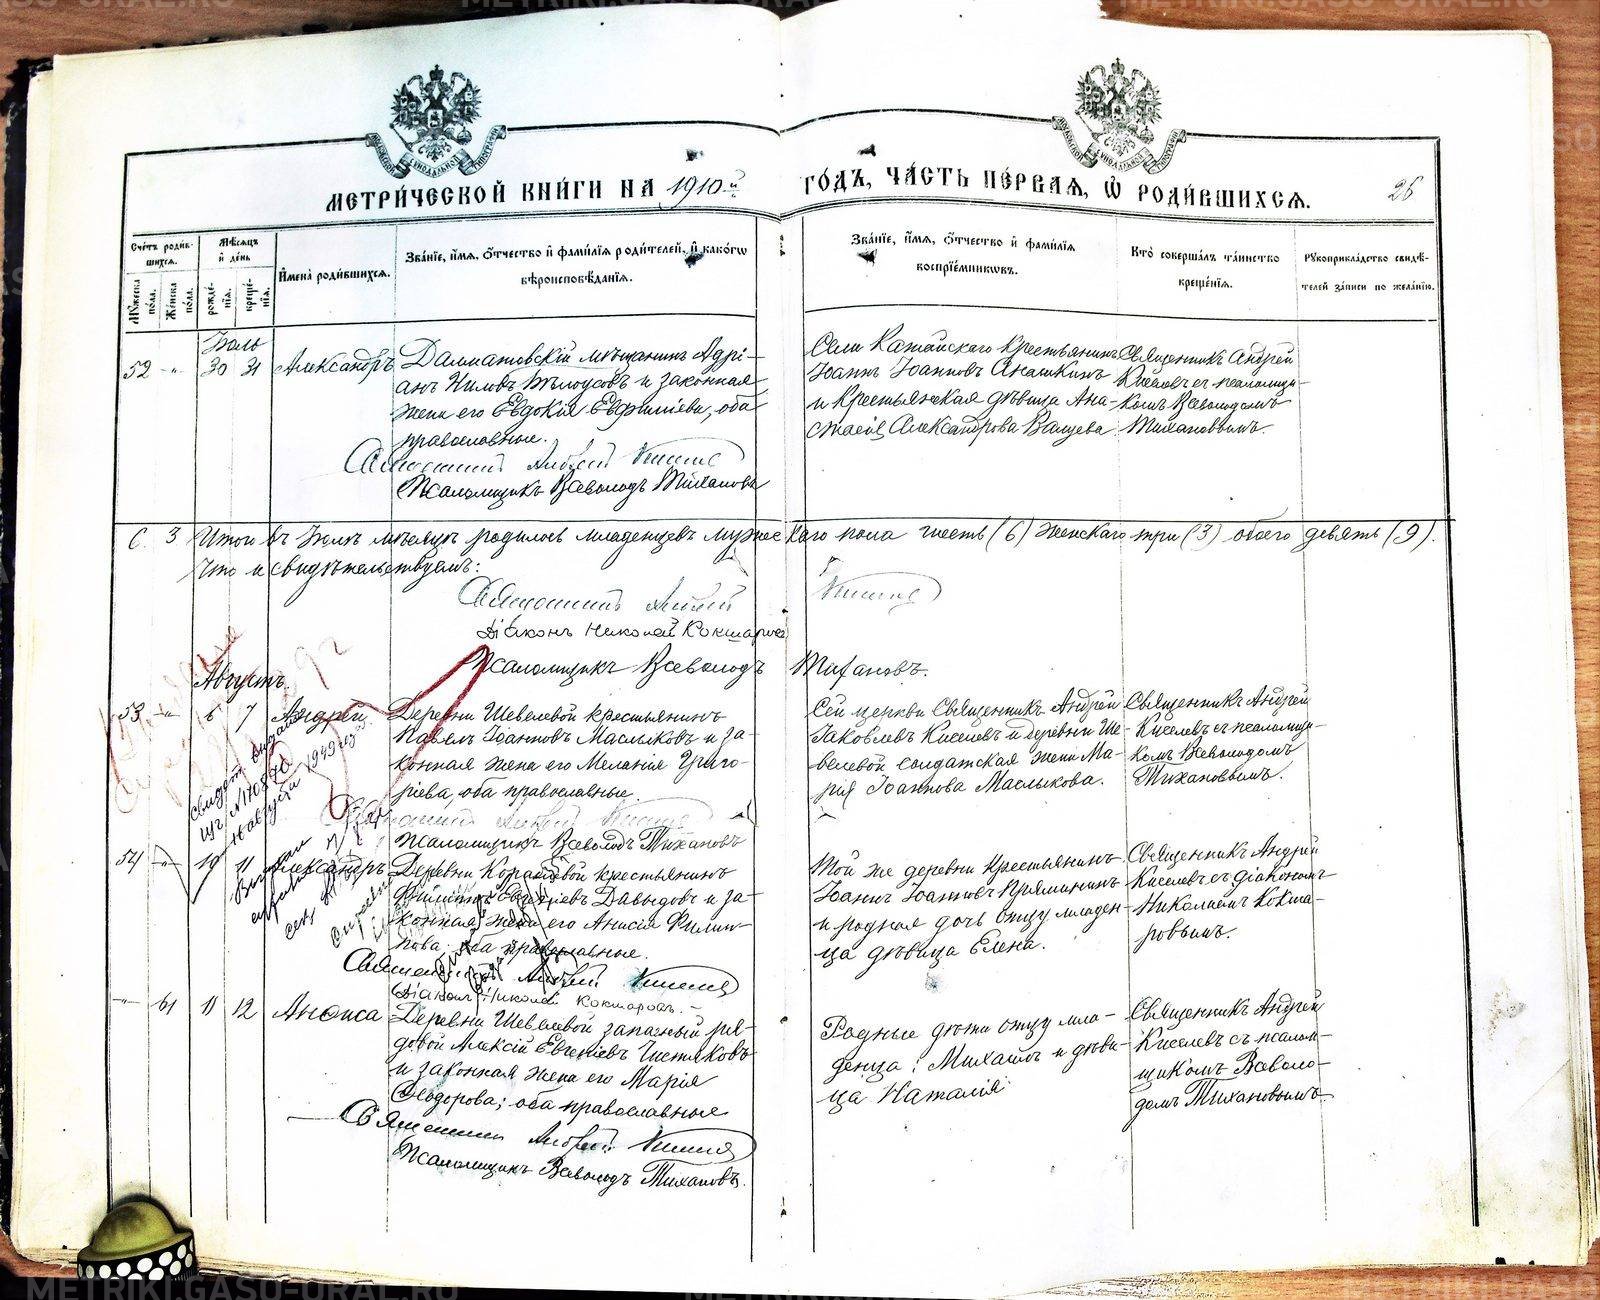 МЕТРИ́ЧЕСКОЙ КНИ́ГИ НА 1910й ГО́ДЪ, ЧА́СТЬ ПЕ́РВАЯ, Ѽ РОДИ́ВШИХСЯ.
26
Сче́тъ роди́вшихся.
Му́жеска по́ла.
Же́нска по́ла.
Мѣ́сяцъ и҆ де́нь
рожде́нїѧ.
креще́нїѧ.
И҆мена̀ роди́вшихсѧ.
Зва́нїе, и҆́мѧ, ѻ҆́тчество и҆ фами́лїѧ роди́телей, и҆ како́гѡ
вѣроисповѣ́данїѧ.
Зва́нїе, и҆́мѧ, ѻ҆́тчество и҆ фами́лїѧ
воспрїе́мникѡвъ.
Кто̀ соверша́лъ та́инство
креще́нїѧ.
Рꙋкоприкла́дство свидѣ́-
телей за́писи по жела́нїю.
Іюль
52 -"- 30 31 Александръ
Далматовскій мѣщанинъ Адрі-
анъ Ниловъ Бѣлоусовъ и законная
жена его Евдокія Евфиміева, оба
православные.
Священникъ Андрей Киселевъ
Псаломщикъ Всеволодъ Тихановъ
Села Катайскаго крестьянинъ
Іоаннъ Іоанновъ Анашкинъ
и крестьянская дѣвица Ана-
стасія Александрова
Священникъ Андрей
Киселевъ съ псаломщи-
комъ Всеволодомъ
Тихановымъ.
6 3 Итого въ Іюлѣ мѣсяцѣ родилось младенцевъ мужескаго пола шесть (6) женскаго три (3) обоего девять (9).
Что и свидѣтельствуемъ:
Священникъ Андрей Киселевъ
Діаконъ Николай Кокшаровъ
Псаломщикъ Всеволодъ Тихановъ.
Августъ.
53 -"- 6 7 Андрей
Деревни Шевелевой крестьянинъ
Павелъ Іоанновъ Маслыковъ и за-
конная жена его Меланія Григо-
ріева, оба православные.
Священникъ Андрей Киселевъ
Псаломщикъ Всеволодъ Тихановъ
Сей церкви Священникъ Андрей
Іаковлевъ Киселевъ и деревни Ше-
велевой солдатская жена Ма-
рія Іоаннова Маслыкова.
Священникъ Андрей
Киселевъ съ псаломщи-
комъ Всеволодомъ
Тихановымъ.
августа 1949 года
54 -"- 10 11 Александръ
Деревни крестьянинъ
Давыдовъ и за-
конная жена его Анисія Филип-
пова, оба православные.
Священникъ Андрей Киселевъ
Діаконъ Николай Кокшаровъ.
Той же деревни крестьянинъ
Іоаннъ Іоанновъ Прямининъ
и родная дочь отцу младен-
ца дѣвица Елена.
Священникъ Андрей
Киселевъ съ діакономъ
Николаемъ Кокша-
ровымъ.
-"- 61 11 12 Анѳиса
Деревни Шевелевой запасный ря-
довой Алексій Евгеніевъ Чистяковъ
и законная жена его Марія
Ѳеодорова; оба православные
Священникъ Андрей Киселевъ
Псаломщикъ Всеволодъ Тихановъ.
Родные дѣти отцу мла-
денца: Михаилъ и дѣви-
ца Наталія
Священникъ Андрей
Киселевъ съ псалом-
щикомъ Всеволо-
домъ Тихановымъ
METRIKI.GASO-URAL.RO